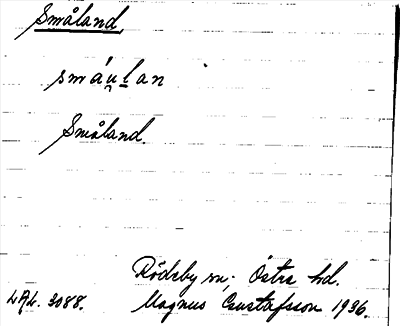 Småland,
småu̯lan
Småland.
Rödeby sn; Östra hd.
LAL. 3088. Magnus Gustafsson 1936.